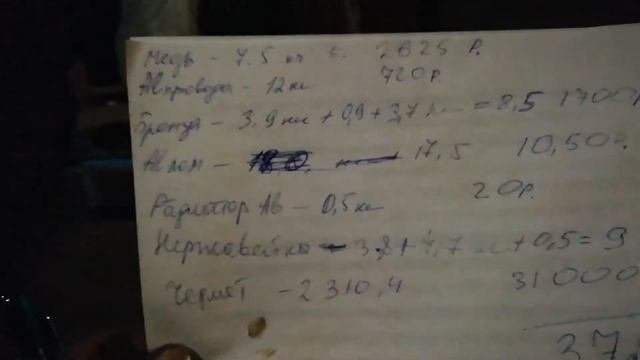 Медь - 7.5 кг 2625 р.
Ав провода - 12 кг 720 р.
Бронза - 3,9 кг + 0,9 + 3,7 = 8,5 1700
Ав лом - 17,5 10,50
Радиатор Ав - 0,5 кг 20 р.
Нержавейка - 3,8 + 4,7 + 0,5 = 9
Чермет - 2310,4 31000
37